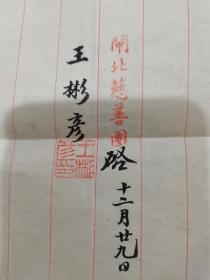 閘北慈善團啓十二月廿九日
王彬彥
王彬彥印